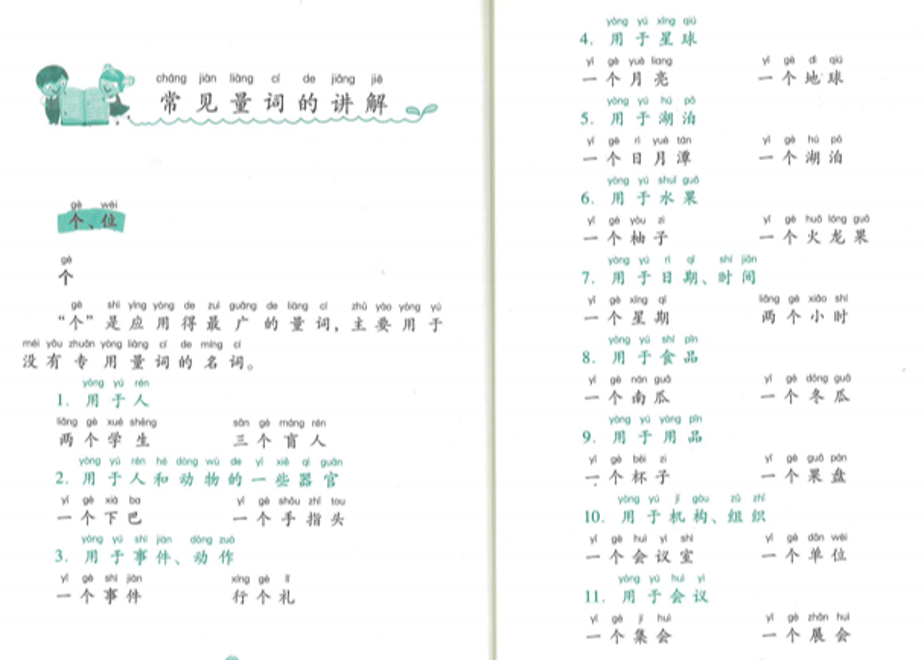 cháng jiàn liàng cí de jiǎng jiě
常见量词的讲解
gè wèi
个、位
gè
个
gè shì yìng yòng de zuì guǎng de liàng cí zhǔ yào yòng yú
“个”是应用得最广的量词，主要用于
méi yǒu zhuān yòng liàng cí de míng cí
没有专用量词的名词。
yòng yú rén
1. 用于人
liǎng gè xué shēng sān gè máng rén
两个学生 三个盲人
yòng yú rén hé dòng wù de yì xiē qì guān
2. 用于人和动物的一些器官
yí gè xià ba yí gè shǒu zhǐ tou
一个下巴 一个手指头
yòng yú shì jiàn dòng zuò
3. 用于事件、动作
yí gè shì jiàn xíng gè lǐ
一个事件 行个礼
yòng yú xīng qiú
4. 用于星球
yí gè yuè liang yí gè dì qiú
一个月亮 一个地球
yòng yú hú pō
5. 用于湖泊
yí gè rì yuè tán yí gè hú pō
一个日月潭 一个湖泊
yòng yú shuǐ guǒ
6. 用于水果
yí gè yòu zi yí gè huǒ lóng guǒ
一个柚子 一个火龙果
yòng yú rì qī shí jiān
7. 用于日期、时间
yí gè xīng qī liǎng gè xiǎo shí
一个星期 两个小时
yòng yú shí pǐn
8. 用于食品
yí gè nán guā yí gè dōng guā
一个南瓜 一个冬瓜
yòng yú yòng pǐn
9. 用于用品
yí gè bēi zi yí gè guǒ pán
一个杯子 一个果盘
yòng yú jī gòu zǔ zhī
10. 用于机构、组织
yí gè huì yì shì yí gè dān wèi
一个会议室 一个单位
yòng yú huì yì
11. 用于会议
yí gè jí huì yí gè zhǎn huì
一个集会 一个展会